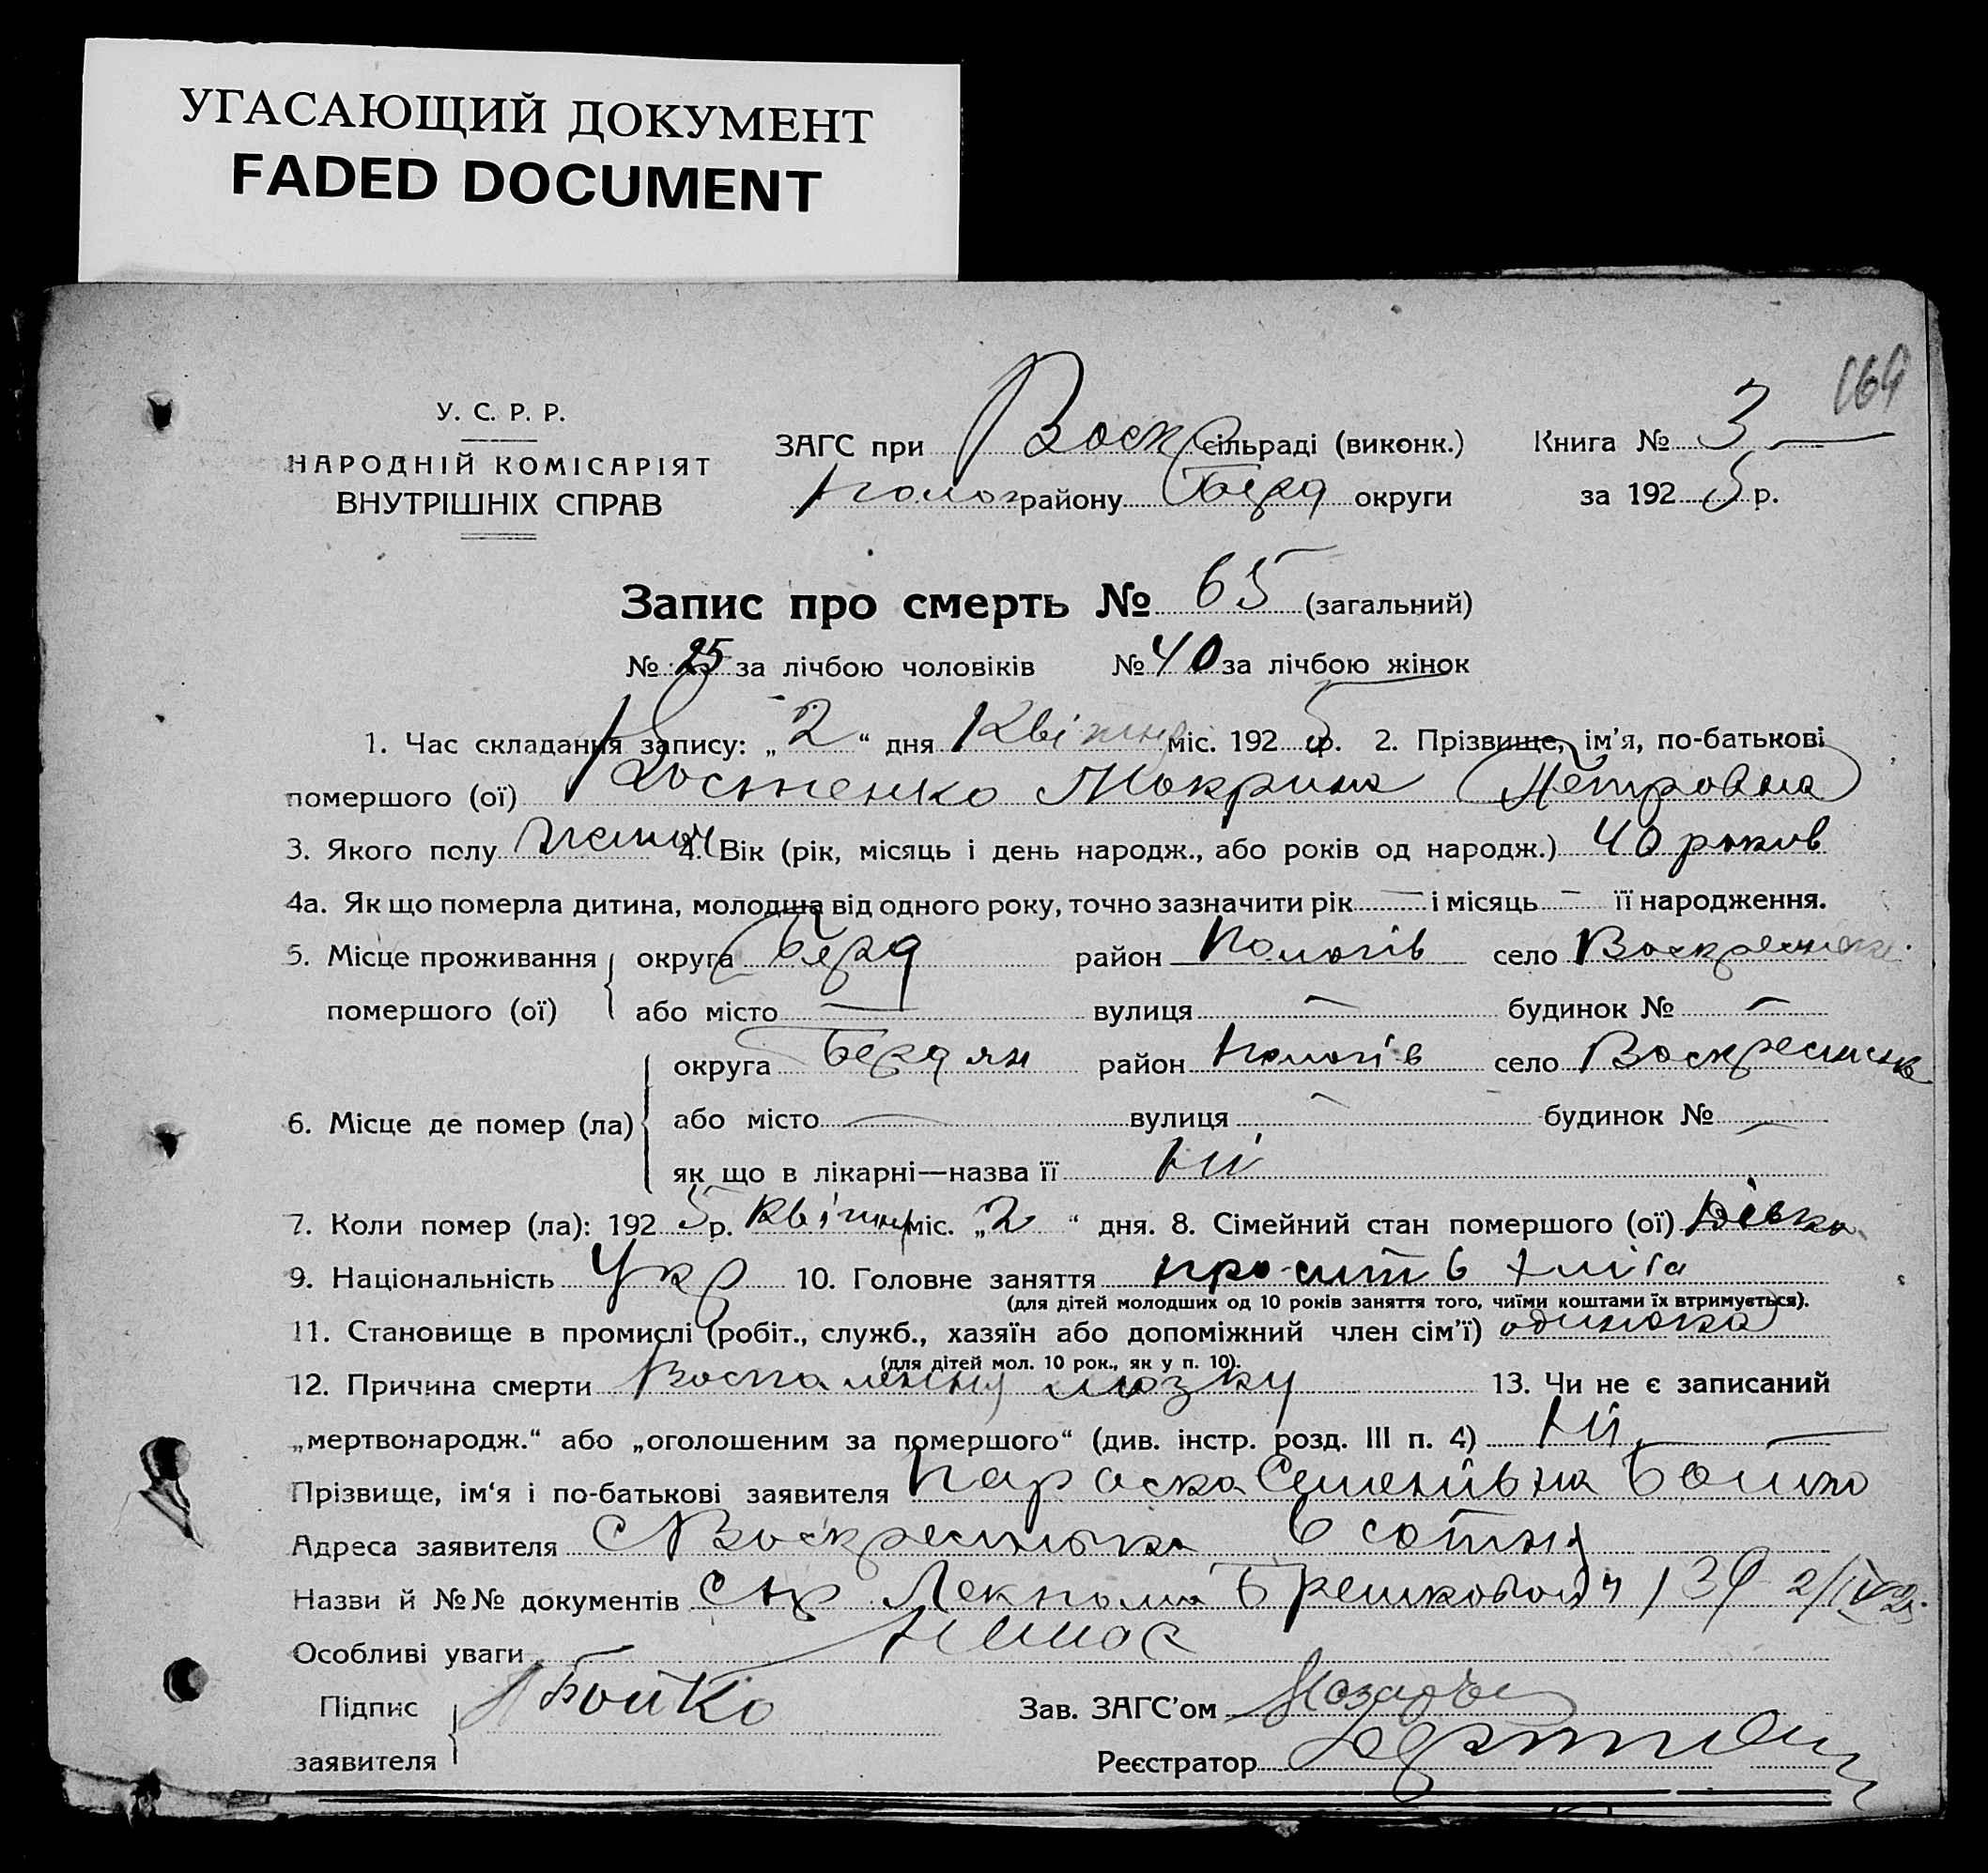 УГАСАЮЩИЙ ДОКУМЕНТ
FADED DOCUMENT
164
У. С. Р. Р.
НАРОДНІЙ КОМІСАРІЯТ
ВНУТРІШНІХ СПРАВ
ЗАГС при Воск сільраді (виконк.) Книга № 3
Полог району Берд округи за 1925 р.
Запис про смерть № 65 (загальний)
№ 25 за лічбою чоловіків № 40 за лічбою жінок
1. Час складання запису: „2“ дня Квітня міс. 1925 р. 2. Прізвище, ім'я, по-батькові
помершого (ої) Костенко Мокрина Петровна
3. Якого полу жіноч 4. Вік (рік, місяць і день народж., або років од народж.) 40 роков
4а. Як що померла дитина, молодша від одного року, точно зазначити рік — і місяць — її народження.
5. Місце проживання округа Берд район Пологів село Воскресенка
помершого (ої) або місто — вулиця — будинок № —
округа Бердян район Пологів село Воскресенка
6. Місце де помер (ла) або місто — вулиця — будинок № —
як що в лікарні—назва її Ні
7. Коли помер (ла): 1925 р. Квітня міс. „2“ дня. 8. Сімейний стан помершого (ої) Дівка
9. Національність Укр 10. Головне заняття просит хліба
(для дітей молодших од 10 років заняття того, чиїми коштами їх втримується).
11. Становище в промислі (робіт., служб., хазяїн або допоміжний член сім'ї) одинока
(для дітей мол. 10 рок., як у п. 10).
12. Причина смерти Воспаления мозку 13. Чи не є записаний
„мертвонародж.“ або „оголошеним за помершого“ (див. інстр. розд. III п. 4) Ні —
Прізвище, ім'я і по-батькові заявителя Параска Семенівна Бойко
Адреса заявителя С Воскресенка 6 сотня
Назви й №№ документів Лекпома 139 2/IV 25
Особливі уваги Немає
Підпис Бойко Зав. ЗАГС'ом
заявителя Реєстратор